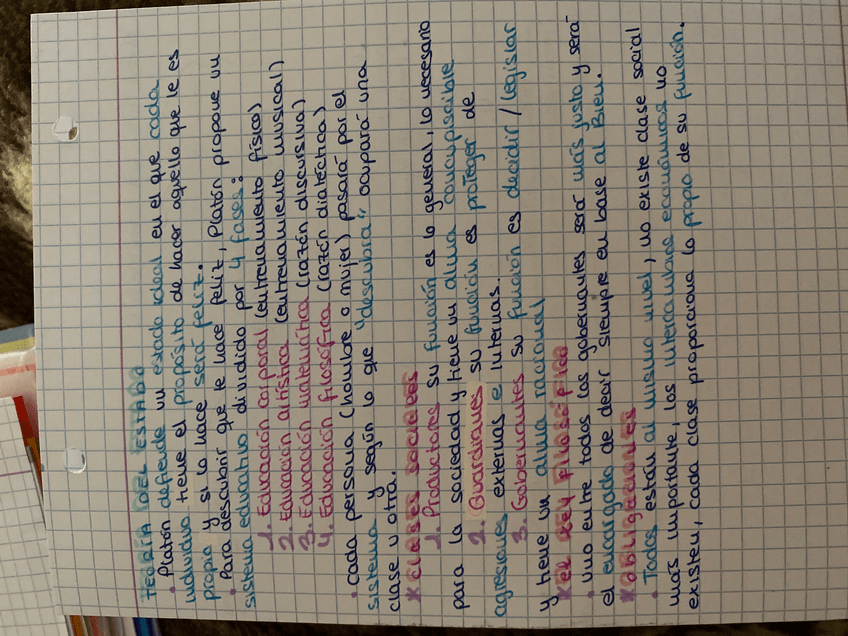 TEORÍA DEL ESTADO
· Platón defiende un estado ideal en el que cada
individuo tiene el propósito de hacer aquello que le es
propio y si lo hace será feliz.
· Para descubrir que le hace feliz, Platón propone un
sistema educativo dividido por 4 fases:
1. Educación corporal (entrenamiento física)
2. Educación artística (entrenamiento musical)
3. Educación matemática (razón discursiva)
4. Educación filosófica (razón dialéctica)
· cada persona (hombre o mujer) pasará por el
sistema y según lo que "descubra" ocupará una
clase u otra.
* CLASES SOCIALES
1. Productores su función es lo general, lo necesario
para la sociedad y tiene un alma concupiscible
2. Guardianes su función es proteger de
agresiones externas e internas.
3. Gobernantes su función es decidir / legislar
y tiene un alma racional
* EL REY FILOSÓFICO
· uno entre todos los gobernantes será más justo y será
el encargado de decir siempre en base al Bien.
* OBLIGACIONES
· Todos están al mismo nivel, no existe clase social
más importante, los intercambios económicos no
existen, cada clase proporciona lo propio de su función.